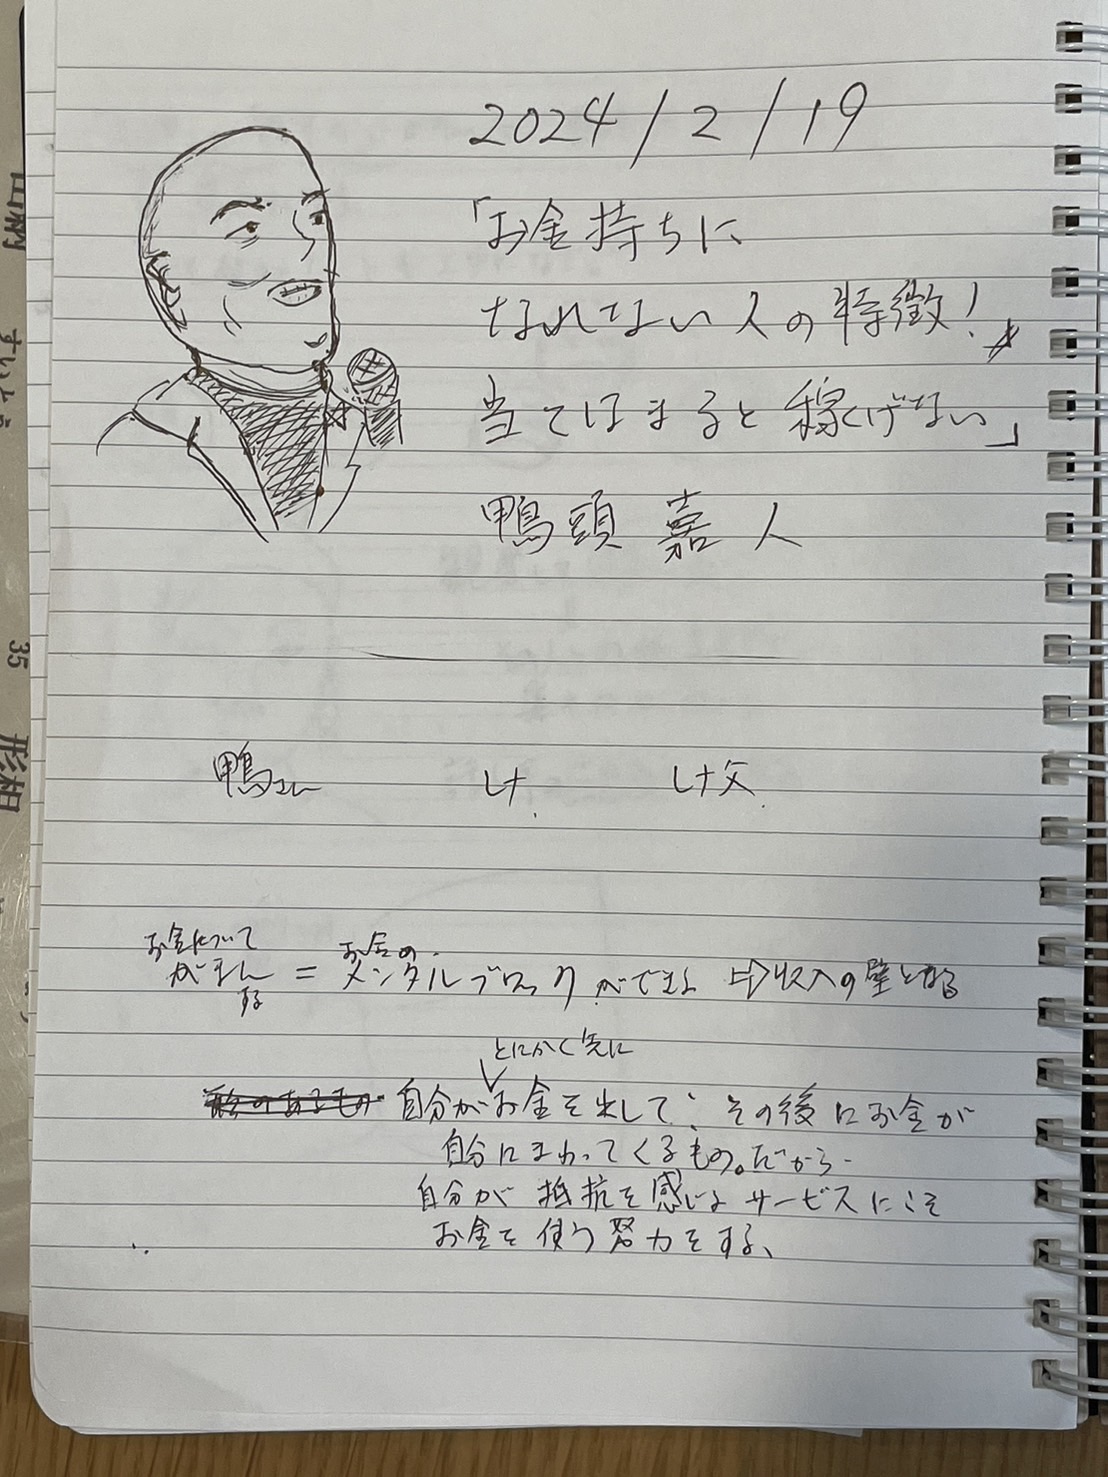 2024/2/19
「お金持ちに
なれない人の特徴!
当てはまると稼げない」
鴨頭 嘉人
鴨
お金について
がまん = お金の
する メンタルブロックができる ⇨収入の壁となる
とにかく先に
形のあるもの 自分がお金を出して、その後にお金が
自分にまわってくるもの。だから
自分が抵抗を感じるサービスにこそ
お金を使う努力をする、
35
形相